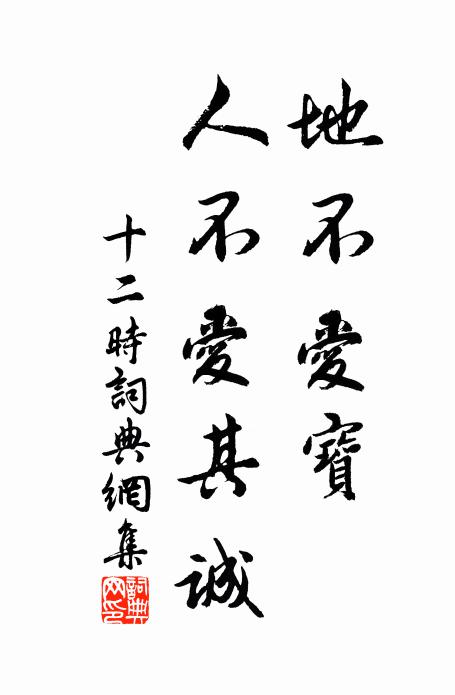 地不愛寶
人不愛其誠
十二時詞典網集
詞典網印